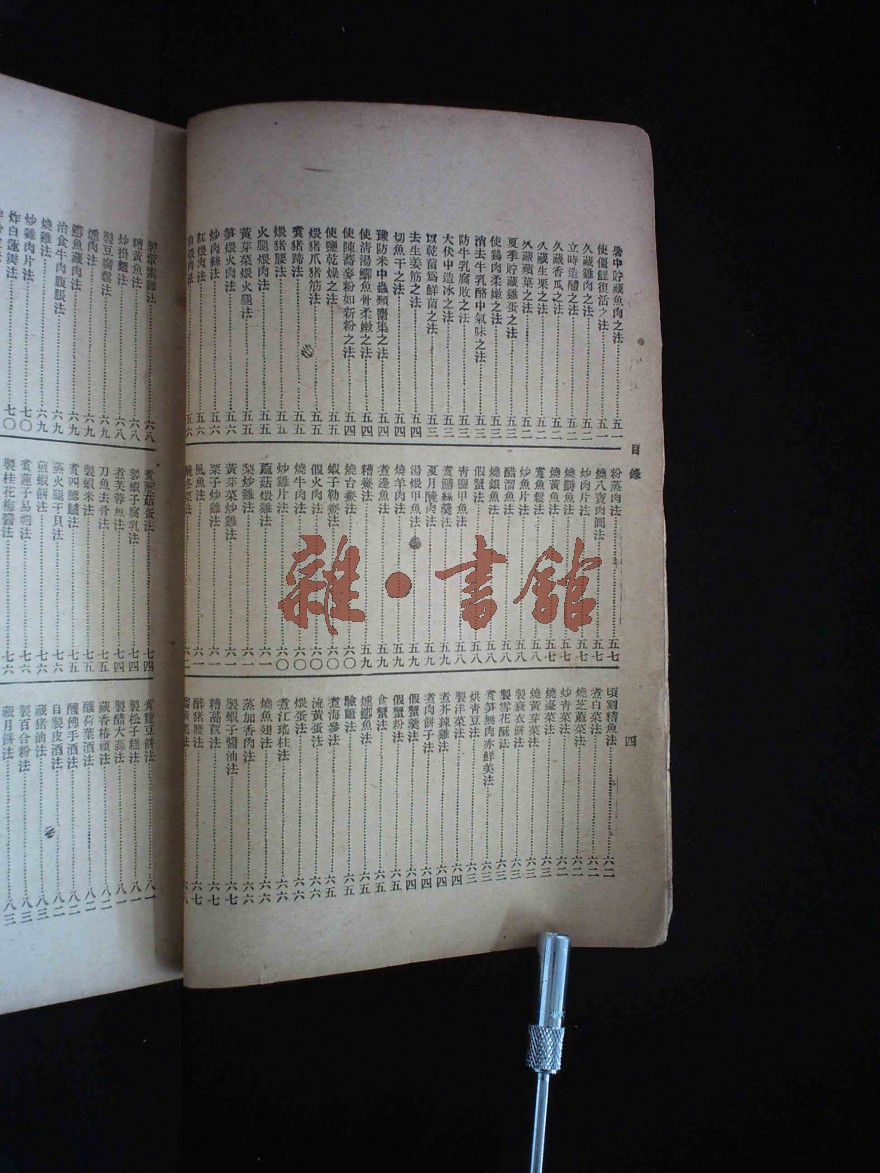 目錄
四
暑中貯藏魚肉之法 五一
使僵餒復活之法 五一
久藏雞肉之法 五二
立時造醋之法 五二
久藏香瓜之法 五二
久藏生栗之法 五二
久藏蘋菜之法 五二
夏季貯藏雞蛋之法 五三
使鷄肉柔嫩之法 五三
消去牛乳酪中氣味之法 五三
防牛乳腐敗之法 五三
大伏中造冰之法 五三
以乾菌爲鮮菌之法 五三
去生姜筋之法 五四
切魚干之法 五四
豫防米中蟲類麕集之法 五四
使清湯鯽魚骨柔嫩之法 五四
使陳蕎麥粉如新粉之法 五四
使鹽乾燥之法 五五
煨猪爪猪筋法 五五
煮猪蹄法 五五
煨猪腰法 五五
火腿煨肉法 五五
黃芽菜煨火腿法 五五
笋煨火肉法 五六
炒肉絲法 五六
紅煨肉法 五六
白煨肉法 五六
粉蒸肉法 五七
燒八寶肉圓法 五七
炒肉片法 五七
燒鰣魚法 五七
燒黃魚法 五七
煮魚鬆法 五八
炒魚片法 五八
醋溜魚法 五八
燒銀魚法 五八
假蟹法 五八
青鹽甲魚法 五八
煮鱔絲羹法 五九
夏月醃肉法 五九
湯煨甲魚法 五九
燒羊肉法 五九
煮邊魚法 五九
糟鯗法 五九
燒台鯗法 六〇
蝦子勒鯗法 六〇
假火肉法 六〇
燒牛肉法 六〇
炒雞片法 六〇
蘑菇煨雞法 六一
梨炒雞法 六一
黃芽菜炒雞法 六一
栗子炒雞法 六一
風魚法 六一
醃冬菜法 六二
頃刻糟魚法 六二
煮白菜法 六二
燒芝蔴菜法 六二
炒青菜法 六二
燒臺菜法 六三
燒黃芽菜法 六三
製蓑衣餅法 六三
製雪花酥法 六三
煮笋無肉亦鮮美法 六三
烘青豆法 六三
製洋菜法 六四
煮芥辣雞法 六四
煮肉餅子法 六四
假蟹羹法 六四
假蟹粉法 六五
食蟹法 六五
燻鯽魚法 六五
驗匾法 六五
煮海參法 六五
流黃蛋法 六六
煨蛋法 六六
煮江瑤柱法 六六
燒魚翅法 六六
蒸加香肉法 六六
製蝦子醬油法 六七
精蒿苣法 六七
醉猪腰法 六七
六八
六八
糟黃魚法 六八
炒掛麵法 六八
製豆腐鬆法 六九
燻肉法 六九
鯽魚藏肉法 六九
治食牛肉腹脹法 六九
燒雞法 六九
炒雞肉片法 七〇
炸白蓮瓣法 七〇
煮蘑菇蛋法 七四
製蝦子腐乳法 七四
煮芙蓉魚法 七四
刀魚去骨法 七五
製蝦米法 七五
煮四鰓鱸法 七五
蒸火腿干貝法 七六
煎蝦餅法 七六
煮蓮子易爛法 七六
製桂花梅醬法 七六
煮鹽豆餅法 八一
製松子糕法 八一
製醋大蒜法 八一
藏香椿頭法 八二
釀荷葉酒法 八二
釀佛手酒法 八二
自製皮酒法 八二
藏猪油法 八三
製百合粉法 八三
藏月餅法 八三
雜·書館